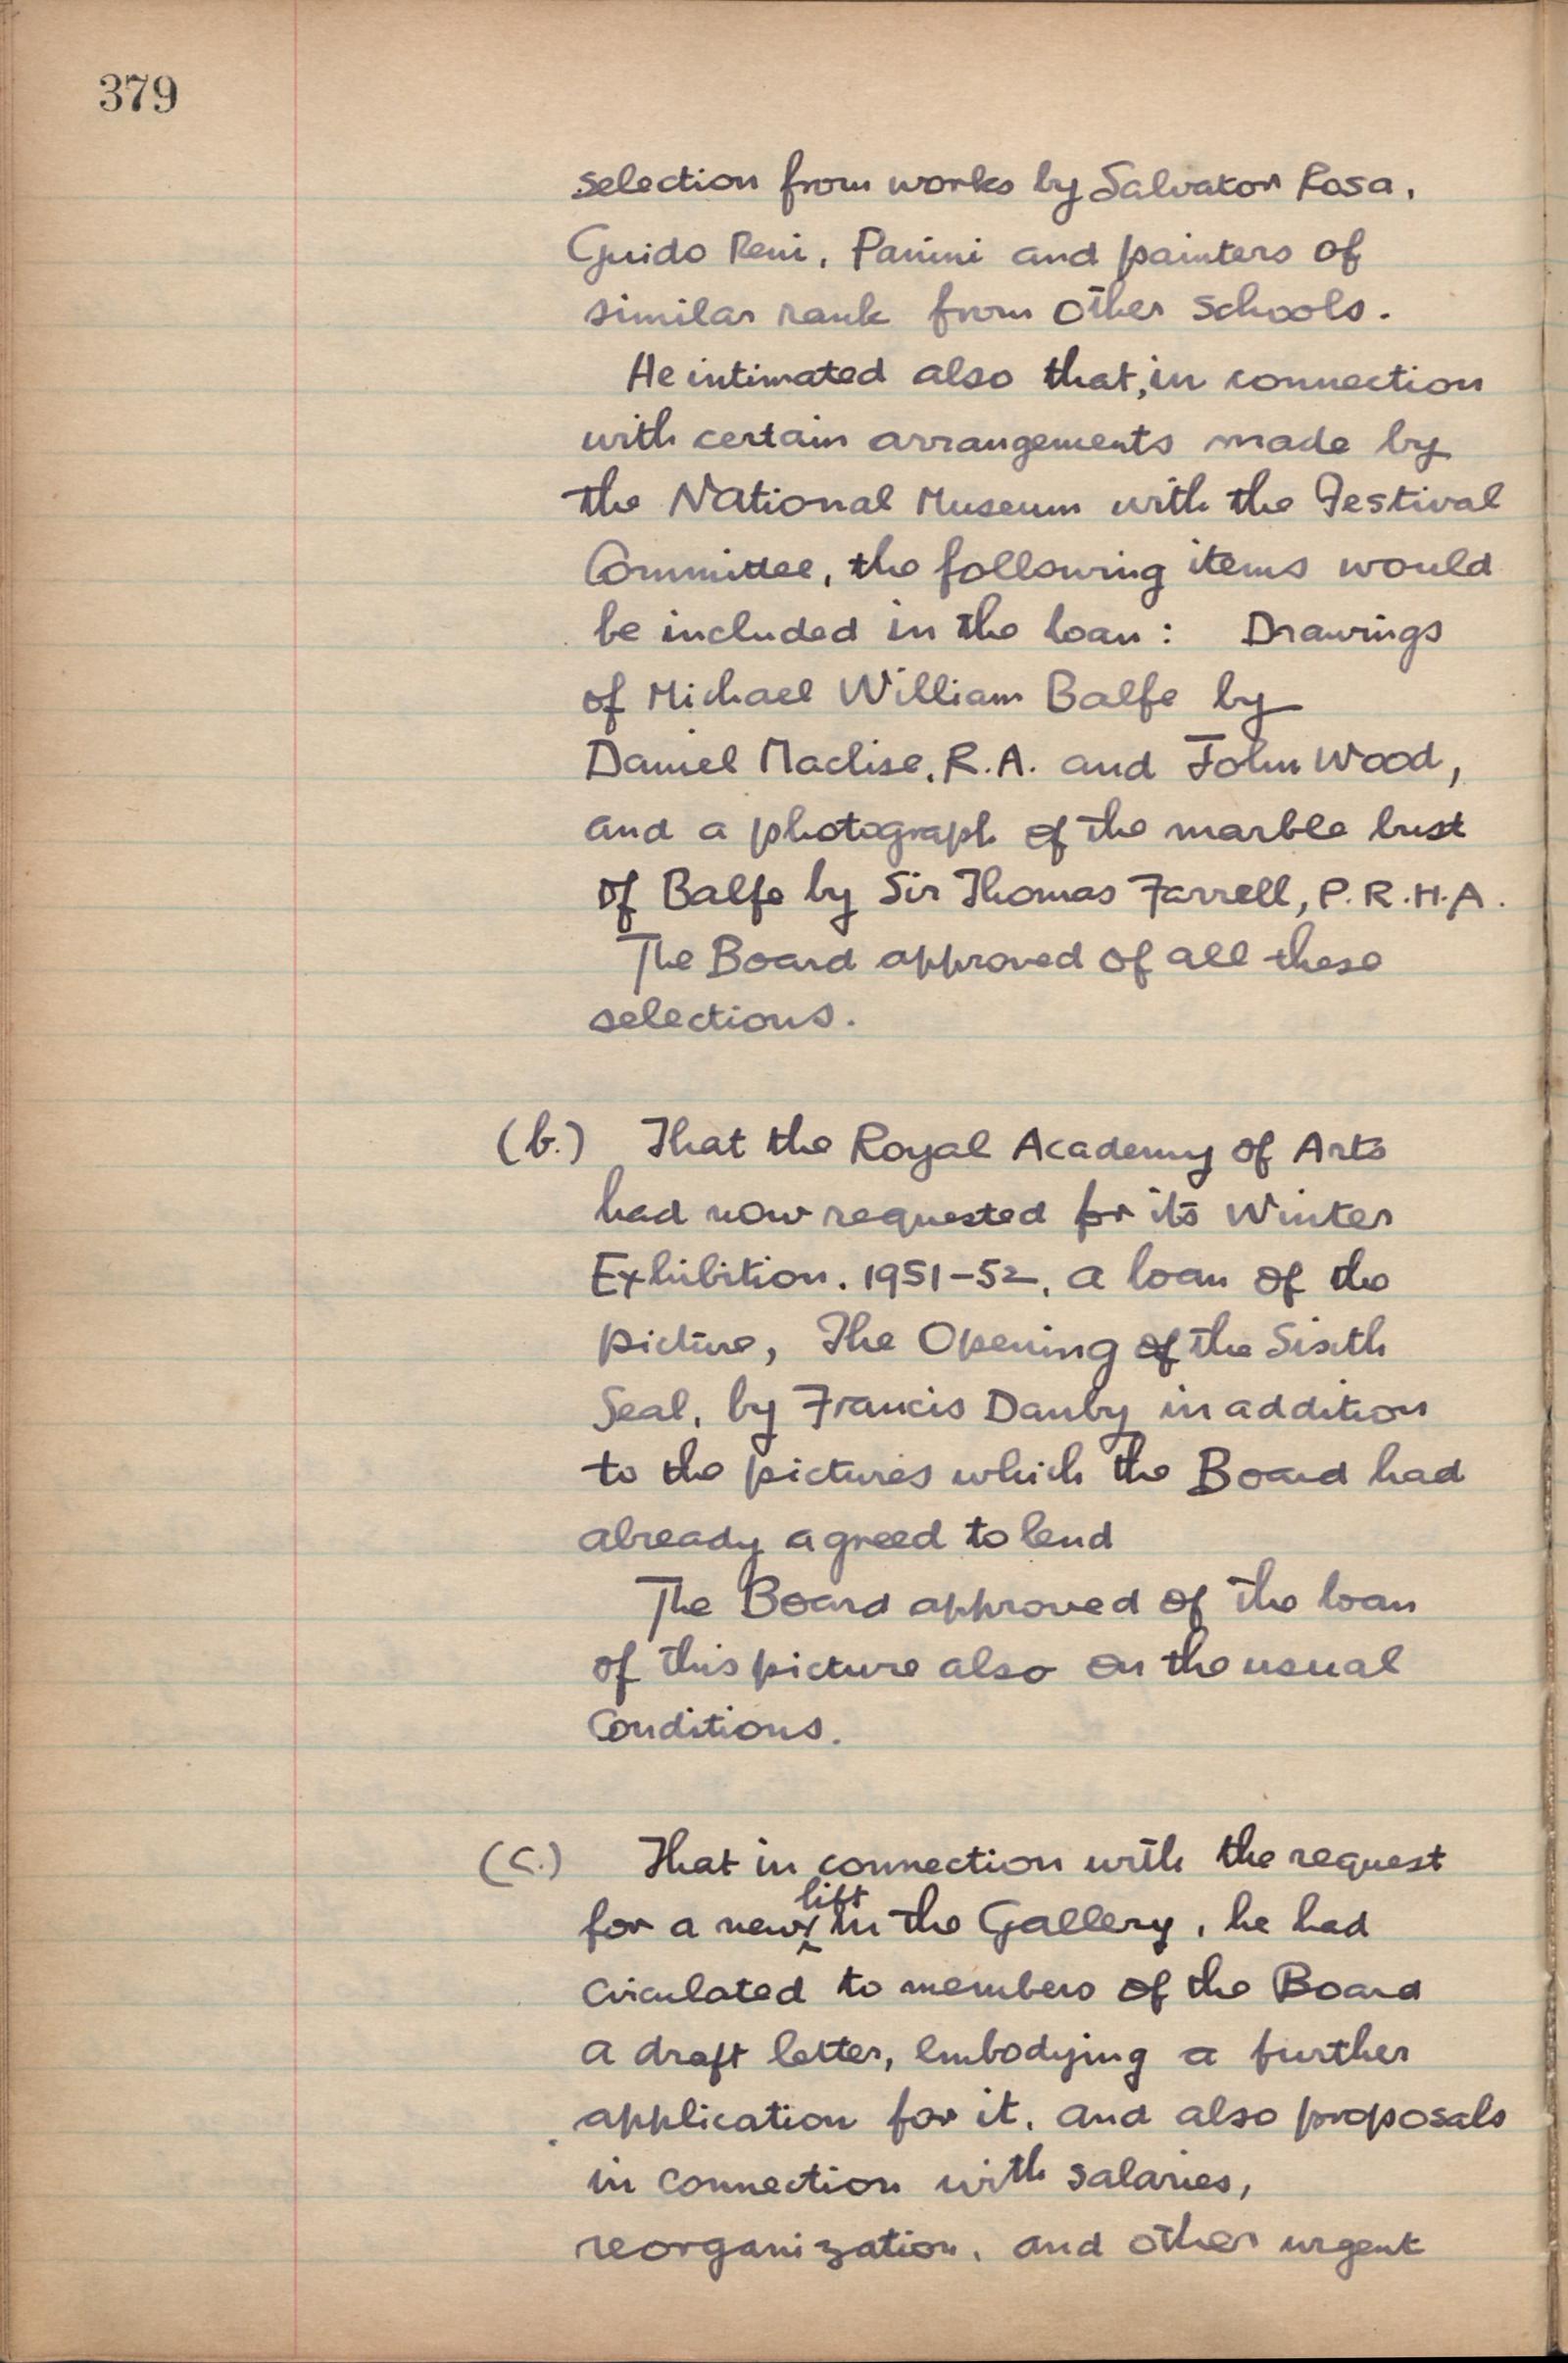 379
selection from works by Salvator Rosa,
Guido Reni, Panini and painters of
similar rank from other schools.
He intimated also that, in connection
with certain arrangements made by
the National Museum with the Festival
Committee, the following items would
be included in the loan: Drawings
of Michael William Balfe by
Daniel Maclise, R.A. and John Wood,
and a photograph of the marble bust
of Balfe by Sir Thomas Farrell, P.R.H.A.
The Board approved of all these
selections.
(b.) That the Royal Academy of Arts
had now requested for its Winter
Exhibition, 1951-52, a loan of the
picture, The Opening of the Sixth
Seal, by Francis Danby in addition
to the pictures which the Board had
already agreed to lend
The Board approved of the loan
of this picture also on the usual
Conditions.
(c.) That in connection with the request
for a new lift in the Gallery, he had
circulated to members of the Board
a draft letter, embodying a further
application for it, and also proposals
in connection with salaries,
reorganization, and other urgent